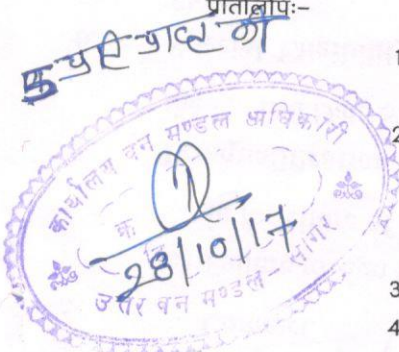 प्रतिलिपिः–
प्राप्त की
1
2
कार्यालय वन मण्डल अधिकारी
क्र
28/10/17
उत्तर वन मण्डल - सागर
3
4